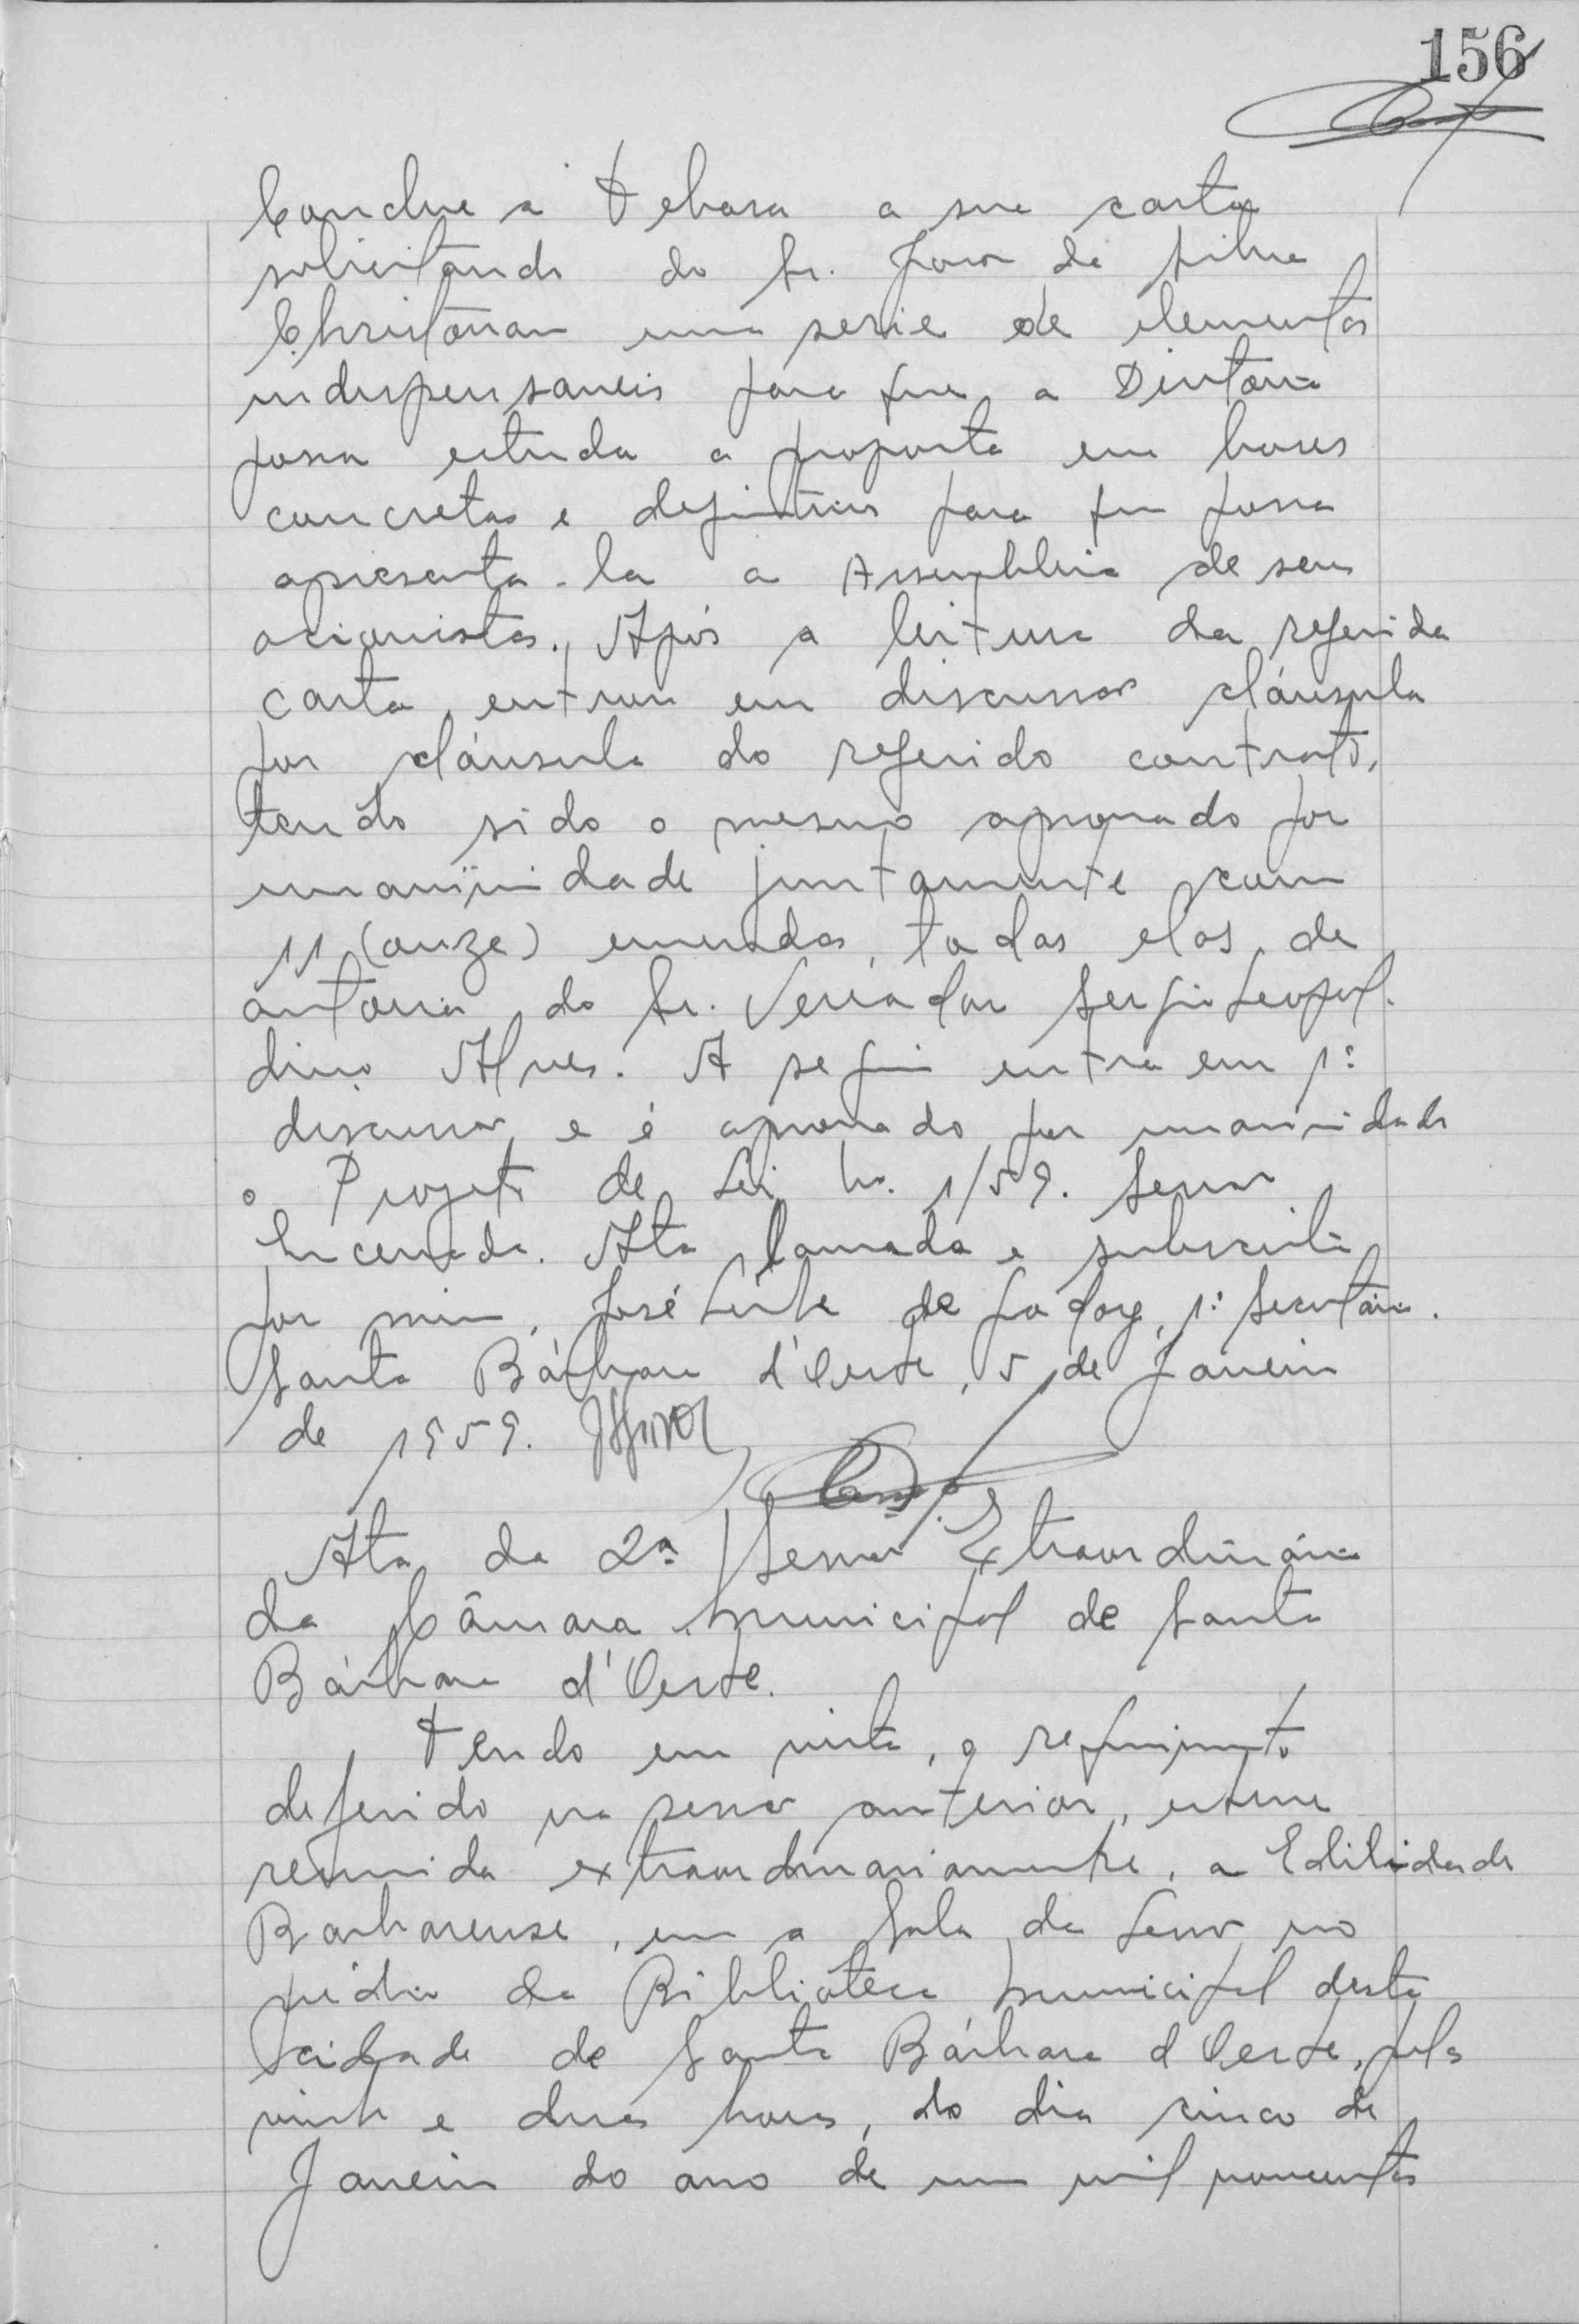 156
Conclue a Tebasa a sua carta
solicitando do Sr. João da Silva
Christovam uma serie de elementos
indispensaveis para que a Diretoria
possa estudar a proposta em bases
concretas e definitivas para que possa
apresenta-la a Assembleia de seus
acionistas. Após a leitura da referida
carta, entrou em discussão cláusula
por cláusula do referido contrato,
tendo sido o mesmo aprovado por
unanimidade juntamente com
11 (onze) emendas, todas elas de
autoria do Sr. Vereador Sergio Leopol-
dino Alves. A seguir entra em 1ª
discussão, e é aprovado por unanimidade
o Projeto de Lei no. 1/59. Sessão
Encerrada. Ata lavrada e subscrita
por mim, José Leite de Godoy, 1º Secretário.
Santa Bárbara d'Oeste, 5 de Janeiro
de 1959.
Ata da 2ª Sessão Extraordinária
da Câmara Municipal de Santa
Bárbara d'Oeste.
Tendo em vista, o requerimento
deferido na sessão anterior, esteve
reunida extraordinariamente, a Edilidade
Barbarense, em a Sala da Sessão no
prédio da Biblioteca Municipal desta
cidade de Santa Bárbara d'Oeste, pelas
vinte e duas horas, do dia cinco de
Janeiro do ano de um mil novecentos